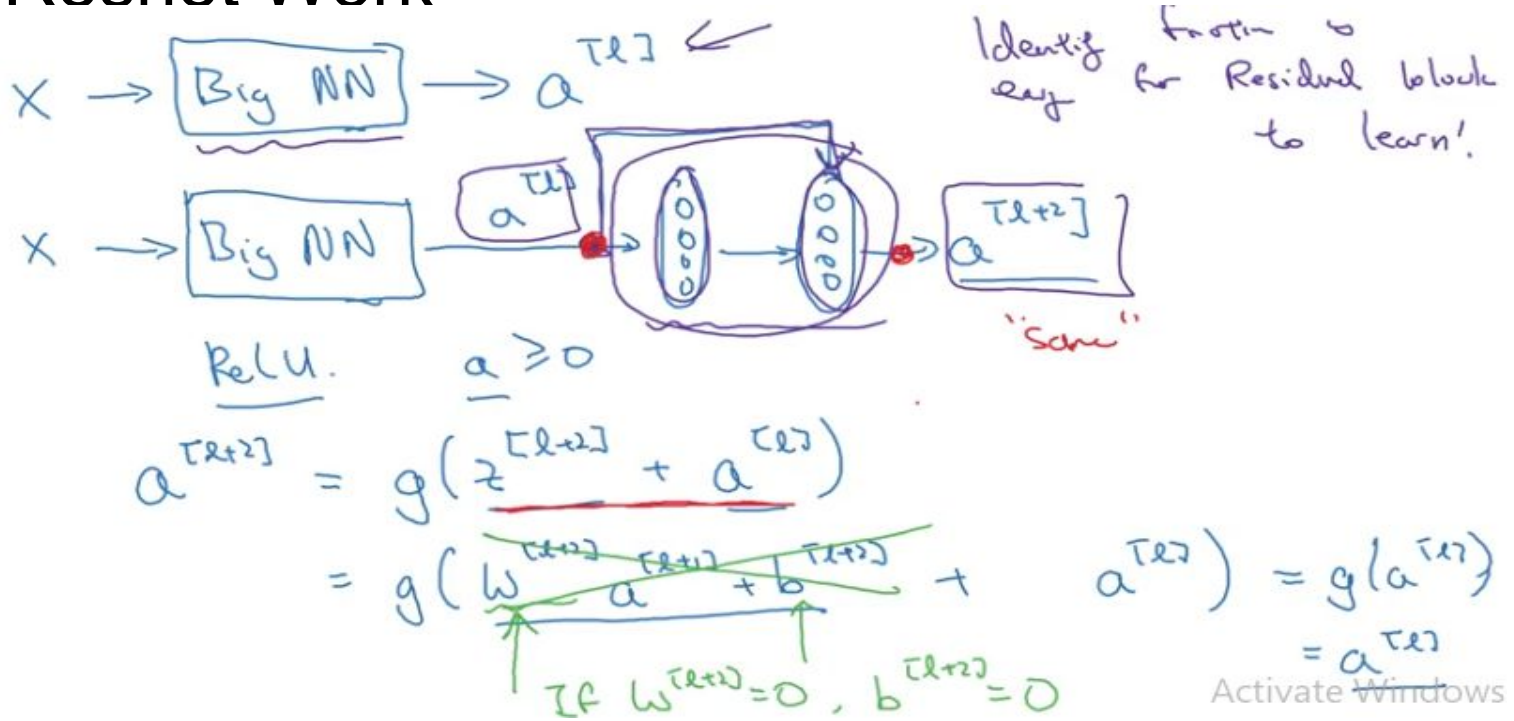 Resnet Work
X → Big NN → a^[l] ←
Identity function is
easy for Residual block
to learn!
X → Big NN → a^[l] → → → a^[l+2]
"same"
ReLU. a ≥ 0
a^[l+2] = g(z^[l+2] + a^[l])
= g(W^[l+2] a^[l+1] + b^[l+2] + a^[l]) = g(a^[l])
= a^[l]
If W^[l+2] = 0, b^[l+2] = 0
Activate Windows